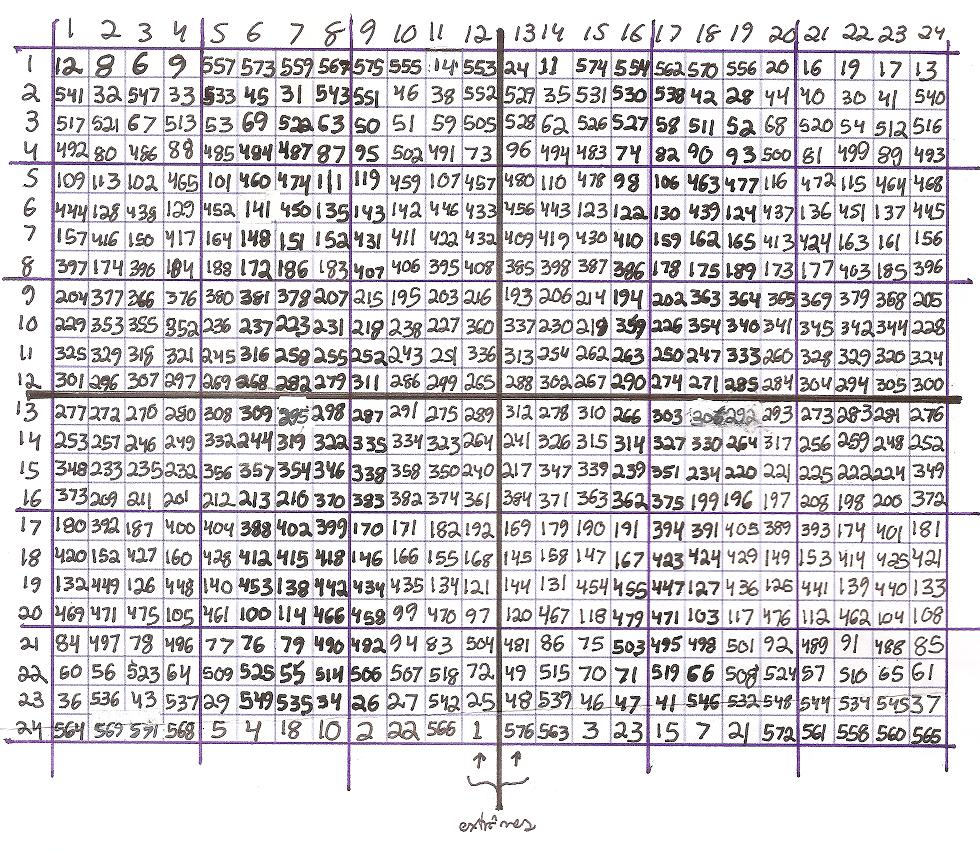 1 2 3 4 5 6 7 8 9 10 11 12 13 14 15 16 17 18 19 20 21 22 23 24
1 12 8 6 9 557 573 559 567 575 555 14 553 24 11 574 554 562 570 556 20 16 19 17 13
2 541 32 547 33 533 45 31 543 551 46 38 552 529 35 531 530 538 42 28 44 40 30 41 540
3 517 521 67 513 53 69 522 63 50 51 59 505 528 62 526 527 58 511 52 68 520 54 512 516
4 492 80 486 88 485 484 487 87 95 502 491 73 96 494 483 74 82 90 93 500 81 499 89 493
5 109 113 102 465 101 460 474 111 119 459 107 457 480 110 478 98 106 463 477 116 472 115 464 468
6 444 128 438 129 452 141 450 135 143 142 446 433 456 443 123 122 130 439 124 437 136 451 137 445
7 157 416 150 417 164 148 151 152 431 411 422 432 409 419 430 410 159 162 165 413 424 163 161 156
8 397 174 396 184 188 172 186 183 407 406 395 408 385 398 387 386 178 175 189 173 177 403 185 396
9 204 377 366 376 380 381 378 207 215 195 203 216 193 206 214 194 202 363 364 365 369 379 368 205
10 229 353 355 352 236 237 223 231 218 238 227 360 337 230 219 359 226 354 340 341 345 342 344 228
11 325 329 318 321 245 316 258 255 252 243 251 336 313 254 262 263 250 247 333 260 328 329 320 324
12 301 296 307 297 269 268 282 279 311 286 299 265 288 302 267 290 274 271 285 284 304 294 305 300
13 277 272 270 280 308 309 295 298 287 291 275 289 312 278 310 266 303 292 293 273 283 281 276
14 253 257 246 249 332 244 319 322 335 334 323 264 241 326 315 314 327 330 264 317 256 259 248 252
15 348 233 235 232 356 357 354 346 338 358 350 240 217 347 339 239 351 234 220 221 225 222 224 349
16 373 209 211 201 212 213 210 370 383 382 374 361 384 371 363 362 375 199 196 197 208 198 200 372
17 180 392 187 400 404 388 402 399 170 171 182 192 169 179 190 191 394 391 405 389 393 174 401 181
18 420 152 427 160 428 412 415 418 146 166 155 168 145 158 147 167 423 424 429 149 153 414 425 421
19 132 449 126 448 140 453 138 442 434 435 134 121 144 131 454 455 447 127 436 125 441 139 440 133
20 469 471 475 105 461 100 114 466 458 99 470 97 120 467 118 479 471 103 117 476 112 462 104 108
21 84 497 78 496 77 76 79 490 482 94 83 504 481 86 75 503 495 498 501 92 489 91 488 85
22 60 56 523 64 509 525 55 514 506 567 518 72 49 515 70 71 519 66 508 524 57 510 65 61
23 36 536 43 537 29 549 535 34 26 27 542 25 48 539 46 47 41 546 532 548 544 534 545 37
24 564 569 571 568 5 4 18 10 2 22 566 1 576 563 3 23 15 7 21 572 561 558 560 565
extrêmes